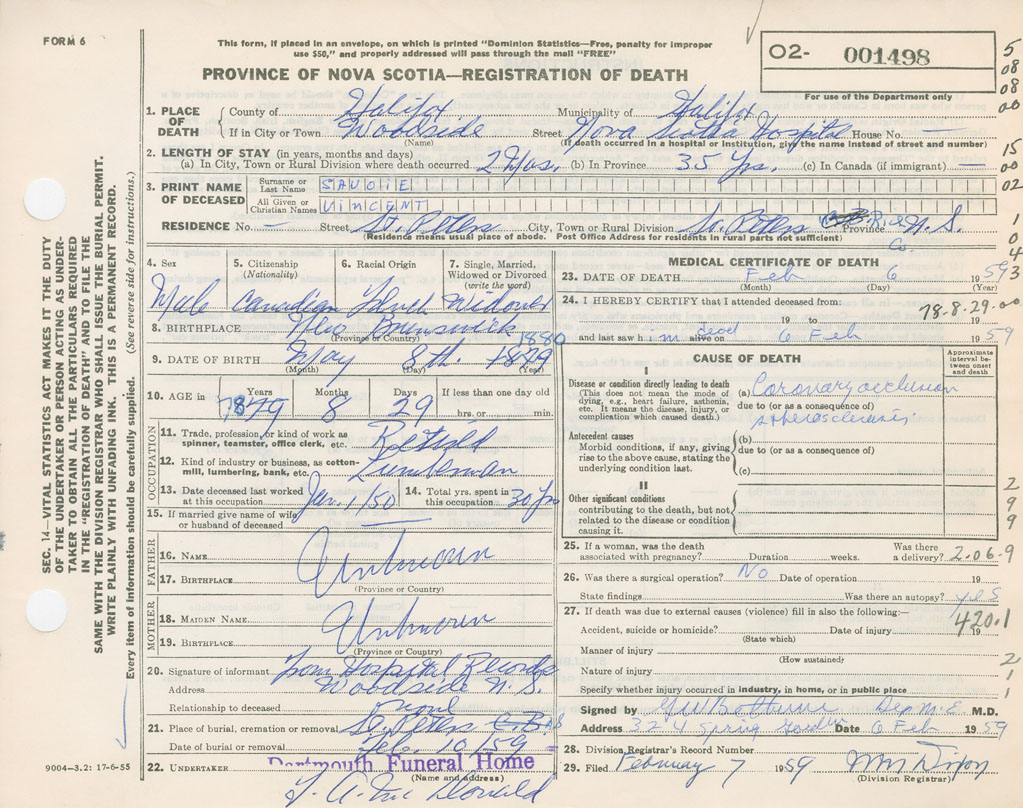 FORM 6
This form, if placed in an envelope, on which is printed "Dominion Statistics—Free, penalty for improper
use $50," and properly addressed will pass through the mail "FREE"
PROVINCE OF NOVA SCOTIA—REGISTRATION OF DEATH
O2- 001498
For use of the Department only
5
08
08
00
15
00
02
1
0
4
3
1. PLACE OF DEATH County of Halifax Municipality of Halifax
If in City or Town Woodside Street Nova Scotia Hospital House No. —
(Name) (If death occurred in a hospital or institution, give the name instead of street and number)
2. LENGTH OF STAY (in years, months and days)
(a) In City, Town or Rural Division where death occurred 2 Yrs. (b) In Province 35 Yrs. (c) In Canada (if immigrant) —
3. PRINT NAME OF DECEASED Surname or Last Name SAVOIE
All Given or Christian Names VINCENT
RESIDENCE No. — Street St. Peters City, Town or Rural Division St. Peters Rich Co. Province N.S.
(Residence means usual place of abode. Post Office Address for residents in rural parts not sufficient)
SEC. 14—VITAL STATISTICS ACT MAKES IT THE DUTY
OF THE UNDERTAKER OR PERSON ACTING AS UNDER-
TAKER TO OBTAIN ALL THE PARTICULARS REQUIRED
IN THE "REGISTRATION OF DEATH" AND TO FILE THE
SAME WITH THE DIVISION REGISTRAR WHO SHALL ISSUE THE BURIAL PERMIT.
WRITE PLAINLY WITH UNFADING INK. THIS IS A PERMANENT RECORD.
Every item of information should be carefully supplied. (See reverse side for instructions.)
4. Sex 5. Citizenship (Nationality) 6. Racial Origin 7. Single, Married, Widowed or Divorced (write the word)
Male Canadian French Widower
8. BIRTHPLACE New Brunswick
(Province or Country)
9. DATE OF BIRTH May 8th. 1879 1880
(Month) (Day) (Year)
10. AGE in Years Months Days If less than one day old
78 79 8 29 hrs. or min.
OCCUPATION
11. Trade, profession, or kind of work as spinner, teamster, office clerk, etc. Retired
12. Kind of industry or business, as cotton-mill, lumbering, bank, etc. Lumberman
13. Date deceased last worked at this occupation Jan. 1/50 14. Total yrs. spent in this occupation 30 Yrs
15. If married give name of wife or husband of deceased —
FATHER
16. NAME Unknown
17. BIRTHPLACE
(Province or Country)
MOTHER
18. MAIDEN NAME Unknown
19. BIRTHPLACE
(Province or Country)
20. Signature of informant From Hospital Records
Address Woodside N.S.
Relationship to deceased none
21. Place of burial, cremation or removal St. Peters C.B. N.S
Date of burial or removal Feb. 10/59
22. UNDERTAKER Dartmouth Funeral Home
(Name and address)
MEDICAL CERTIFICATE OF DEATH
23. DATE OF DEATH Feb 6 1959
(Month) (Day) (Year)
24. I HEREBY CERTIFY that I attended deceased from: 78.8.29.00
19 to 19
and last saw him dead alive on 6 Feb 1959
CAUSE OF DEATH
Approximate interval between onset and death
I
Disease or condition directly leading to death
(This does not mean the mode of dying, e.g., heart failure, asthenia, etc. It means the disease, injury, or complication which caused death.)
(a) Coronary occlusion
due to (or as a consequence of)
atherosclerosis
Antecedent causes
Morbid conditions, if any, giving rise to the above cause, stating the underlying condition last.
(b)
due to (or as a consequence of)
(c)
II
Other significant conditions
contributing to the death, but not related to the disease or condition causing it.
2
9
9
9
25. If a woman, was the death associated with pregnancy? Duration weeks. Was there a delivery? 2.06.9
26. Was there a surgical operation? No Date of operation 19
State findings Was there an autopsy? yes
27. If death was due to external causes (violence) fill in also the following:—
420.1
Accident, suicide or homicide? Date of injury 19
(State which)
Manner of injury
(How sustained)
Nature of injury
Specify whether injury occurred in industry, in home, or in public place
1
2
1
1
Signed by Dep M.E. M.D.
Address 324 Spring Garden Date 6 Feb 1959
28. Division Registrar's Record Number
29. Filed February 7 1959
(Division Registrar)
9004—3.2: 17-6-55